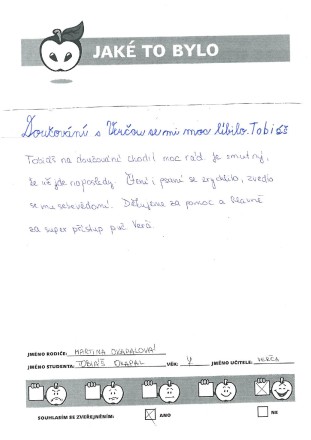 JAKÉ TO BYLO
Doučování s Verčou se mi moc líbilo. Tobiáš
Tobiáš na doučování chodil moc rád. Je smutný,
že už jde naposledy. Čtení i psaní se zrychlilo, zvedlo
se mu sebevědomí. Děkujeme za pomoc a hlavně
za super přístup paní Verči
JMÉNO RODIČE: MARTINA DRAPALOVÁ
JMÉNO STUDENTA: TOBIÁŠ DRAPAL VĚK: JMÉNO UČITELE: VERČA
SOUHLASÍM SE ZVEŘEJNĚNÍM: ANO NE